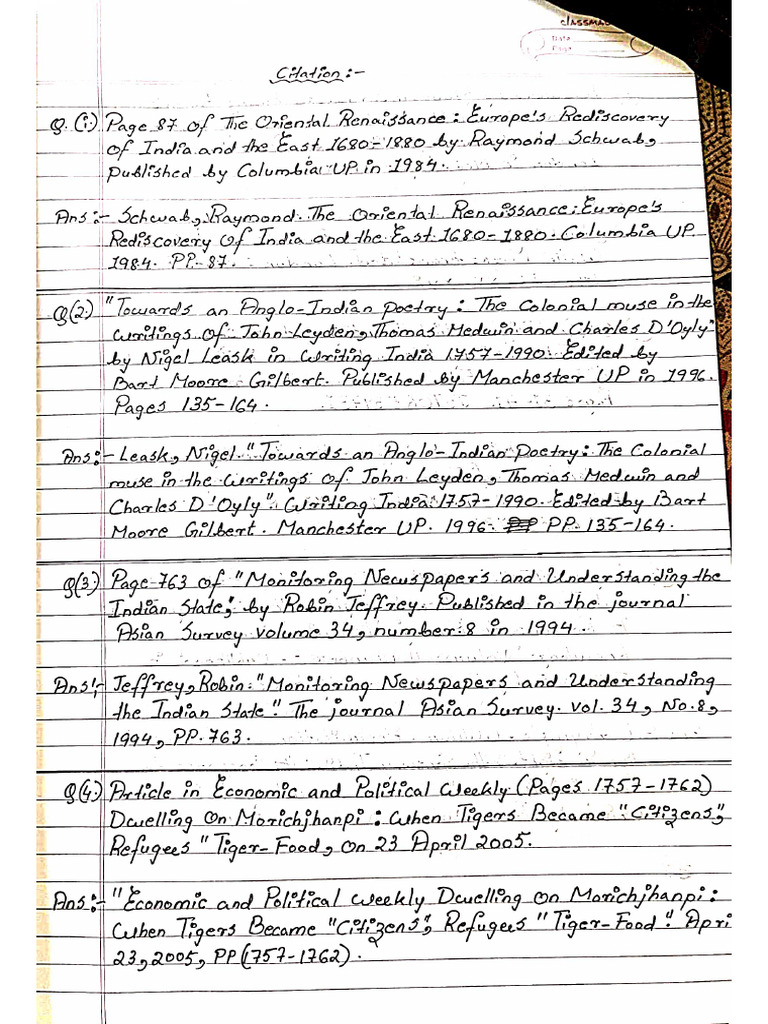 classmate
Date
Page
Citation:-
Q.(1) Page 87 of The Oriental Renaissance: Europe's Rediscovery
of India and the East 1680-1880 by Raymond Schwab,
published by Columbia UP in 1984.
Ans:- Schwab, Raymond. The Oriental Renaissance: Europe's
Rediscovery of India and the East 1680-1880. Columbia UP.
1984. PP. 87.
Q(2.) "Towards an Anglo-Indian poetry: The Colonial muse in the
writings of John Leyden, Thomas Medwin and Charles D'Oyly"
by Nigel Leask in Writing India 1757-1990. Edited by
Bart Moore Gilbert. Published by Manchester UP in 1996.
Pages 135-164.
Ans:- Leask, Nigel. "Towards an Anglo-Indian Poetry: The Colonial
muse in the writings of John Leyden, Thomas Medwin and
Charles D'Oyly". Writing India: 1757-1990. Edited by Bart
Moore Gilbert. Manchester UP. 1996. PP. 135-164.
Q(3.) Page-763 of "Monitoring Newspapers and Understanding the
Indian State", by Robin Jeffrey. Published in the journal
Asian Survey volume 34, number 8 in 1994.
Ans:- Jeffrey, Robin. "Monitoring Newspapers and Understanding
the Indian State". The journal Asian Survey. vol. 34, No. 8,
1994, PP. 763.
Q(4.) Article in Economic and Political Weekly (Pages 1757-1762)
Dwelling on Morichjhanpi: When Tigers Became "Citizens",
Refugees "Tiger-Food, on 23 April 2005.
Ans:- "Economic and Political Weekly Dwelling on Morichjhanpi:
When Tigers Became "Citizens", Refugees "Tiger-Food". Apri
23, 2005, PP (1757-1762).